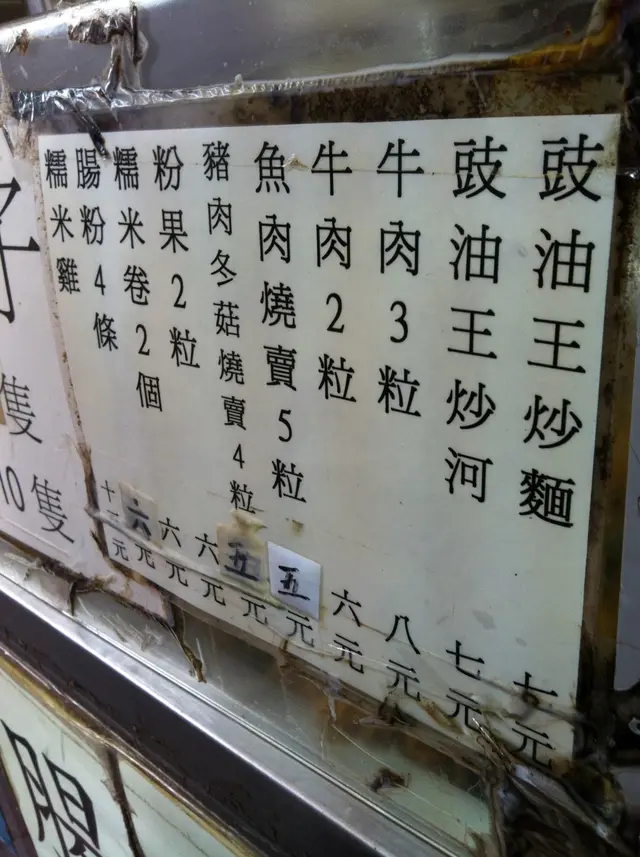 豉油王炒麵 七元
豉油王炒河 七元
牛肉3粒 八元
牛肉2粒 六元
魚肉燒賣5粒 五元
豬肉冬菇燒賣4粒 五元
粉果2粒 六元
糯米卷2個 六元
腸粉4條 六元
糯米雞 元
隻
10隻
腸